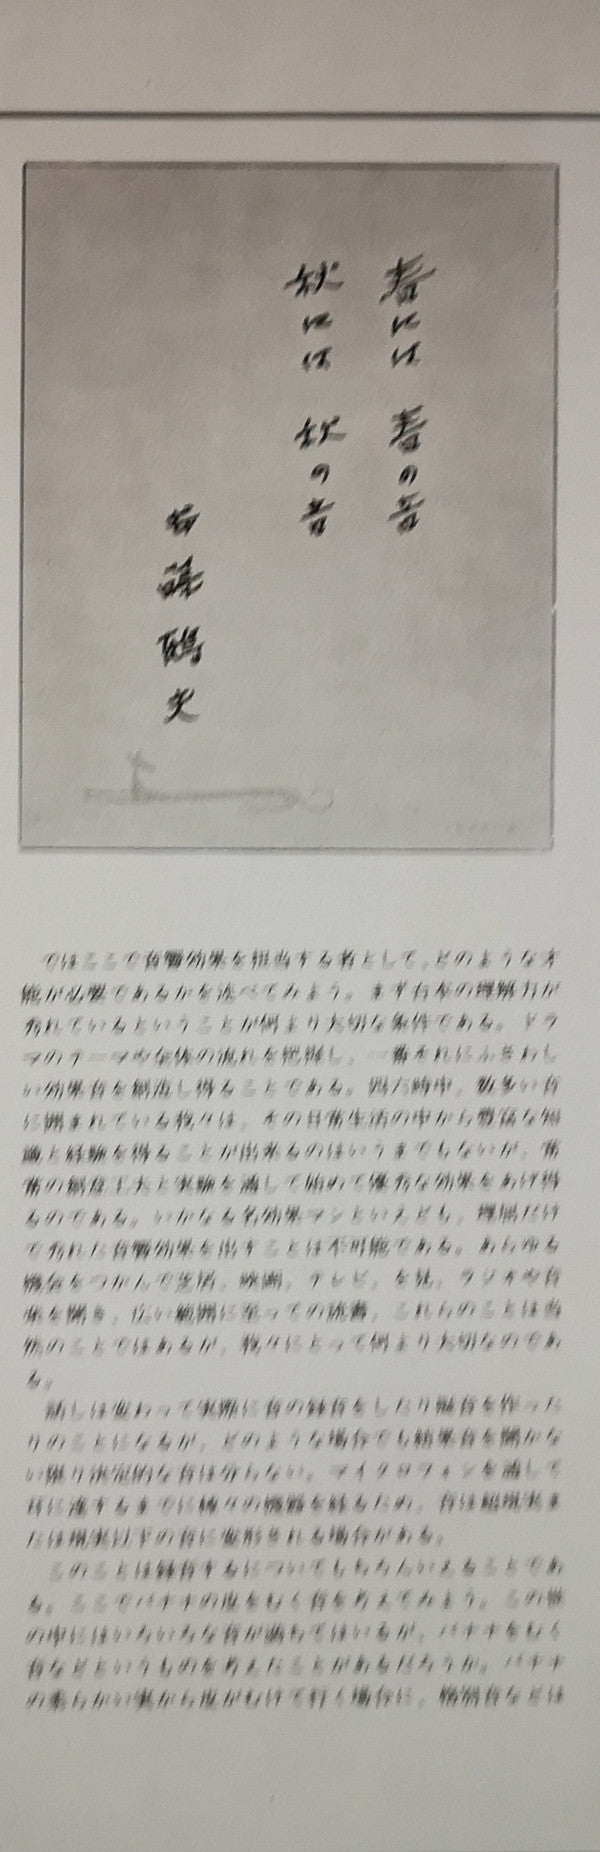 春には 春の音
秋には 秋の音
ではここで音響効果を担当する者として、どのような才
能が必要であるかを述べてみよう。まず台本の理解力が
秀れているということが何より大切な条件である。ドラ
マのテーマや全体の流れを把握し、一番それにふさわし
い効果音を創造し得ることである。四六時中、数多い音
に囲まれている我々は、その日常生活の中から豊富な知
識と経験を得ることが出来るのはいうまでもないが、常
常の創意工夫と実験を通して始めて優秀な効果をあげ得
るのである。いかなる名効果マンといえども、理屈だけ
で秀れた音響効果を出すことは不可能である。あらゆる
機会をつかんで芝居、映画、テレビ、を見、ラジオや音
楽を聞き、広い範囲に至っての読書、これらのことは当
然のことではあるが、我々にとって何より大切なのであ
る。
話しは変わって実際に音の録音をしたり擬音を作った
りのことになるが、どのような場合でも結果音を聞かな
い限り決定的な音は分らない。マイクロフォンを通して
耳に達するまでに種々の機器を経るため、音は超現実ま
たは現実以下の音に変形される場合がある。
このことは録音するについてもちろんいえることであ
る。ここでバナナの皮をむく音を考えてみよう。この世
の中にはいろいろな音が満ちてはいるが、バナナをむく
音などというものを考えたことがあるだろうか。バナナ
の柔らかい実から皮がむけて行く場合に、特別音などは